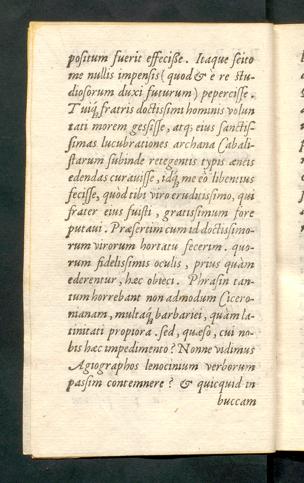 positum fuerit effecisse. Itaque scito
me nullis impensis (quod & e re stu-
diosorum duxi futurum) pepercisse.
Tuiq́; fratris doctissimi hominis volun
tati morem gessisse, atq; eius sanctis-
simas lucubrationes archana Cabali-
starum subinde retegentis typis æneis
edendas curauisse, idq́; me eò libentius
fecisse, quòd tibi viro eruditissimo, qui
frater eius fuisti, gratissimum fore
putaui. Præsertim cum id doctissimo-
rum virorum hortatu fecerim. quo-
rum fidelissimis oculis, prius quàm
ederentur, hæc obieci. Phrasin tan-
tum horrebant non admodum Cicero-
nianam, multaq́; barbariei, quàm la-
tinitati propiora. sed, quæso, cui no-
bis hæc impedimento? Nonne vidimus
Agiographos lenocinium verborum
passim contemnere? & quicquid in
buccam